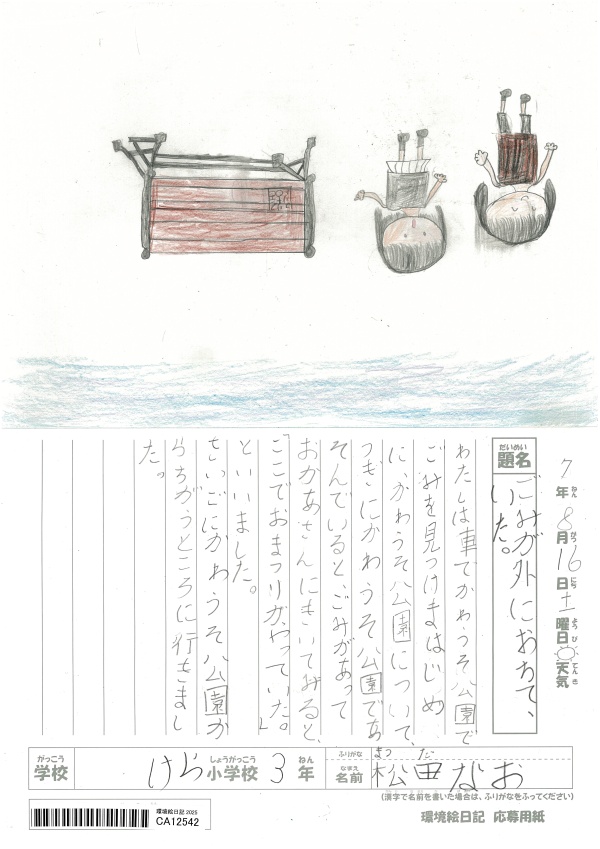 7年8月16日土曜日天気
ねん がつ にち ようび てんき
だいめい
題名
ごみが外におちて、
いた。
わたしは車でかわうそ公園で
ごみを見つけまはじめ
に、かわうそ公園について、
つぎにかわうそ公園であ
そんでいると、ごみがあって
おかあさんにきいてみると、
「ここでおまつりがやっていた。」
といいました。
さいごにかわうそ公園か
らちがうところに行きまし
た。
がっこう しょうがっこう ねん
学校 けら小学校 3年
ふりがな まつ だ
なまえ
名前 松田なお
(漢字で名前を書いた場合は、ふりがなをふってください)
環境絵日記 応募用紙
環境絵日記 2025
CA12542